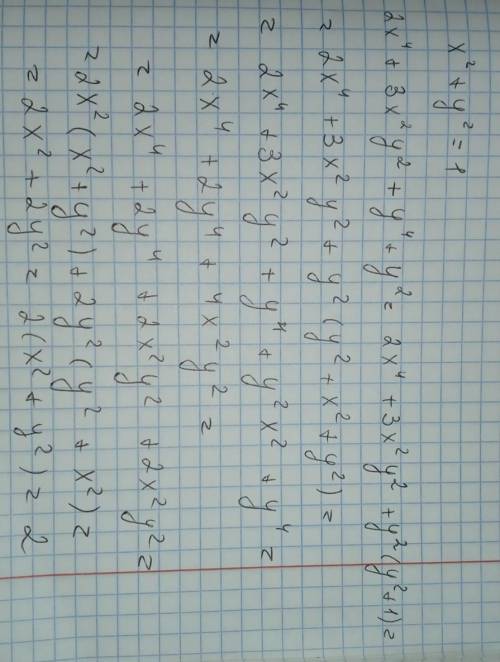 x² + y² = 1
2x⁴ + 3x²y² + y⁴ + y² = 2x⁴ + 3x²y² + y²(y²+1) =
= 2x⁴ + 3x²y² + y²(y² + x² + y²) =
= 2x⁴ + 3x²y² + y⁴ + y²x² + y⁴ =
= 2x⁴ + 2y⁴ + 4x²y² =
= 2x⁴ + 2y⁴ + 2x²y² + 2x²y² =
= 2x²(x² + y²) + 2y²(y² + x²) =
= 2x² + 2y² = 2(x² + y²) = 2